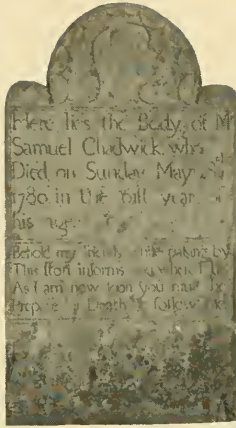 Here lies the Body of M
Samuel Chadwick who
Died on Sunday May
1780 in the year of
his age
Behold my passing by
This ston informs you where I
As I am now soon you must be
Prepare Death & follow me